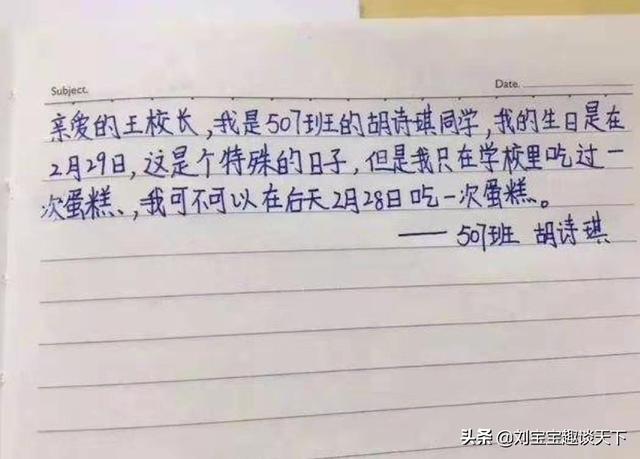 Subject.
Date.
亲爱的王校长,我是507班的胡诗琪同学,我的生日是在
2月29日,这是个特殊的日子,但是我只在学校里吃过一
次蛋糕、,我可不可以在后天2月28日吃一次蛋糕。
——507班 胡诗琪
头条 @刘宝宝趣谈天下